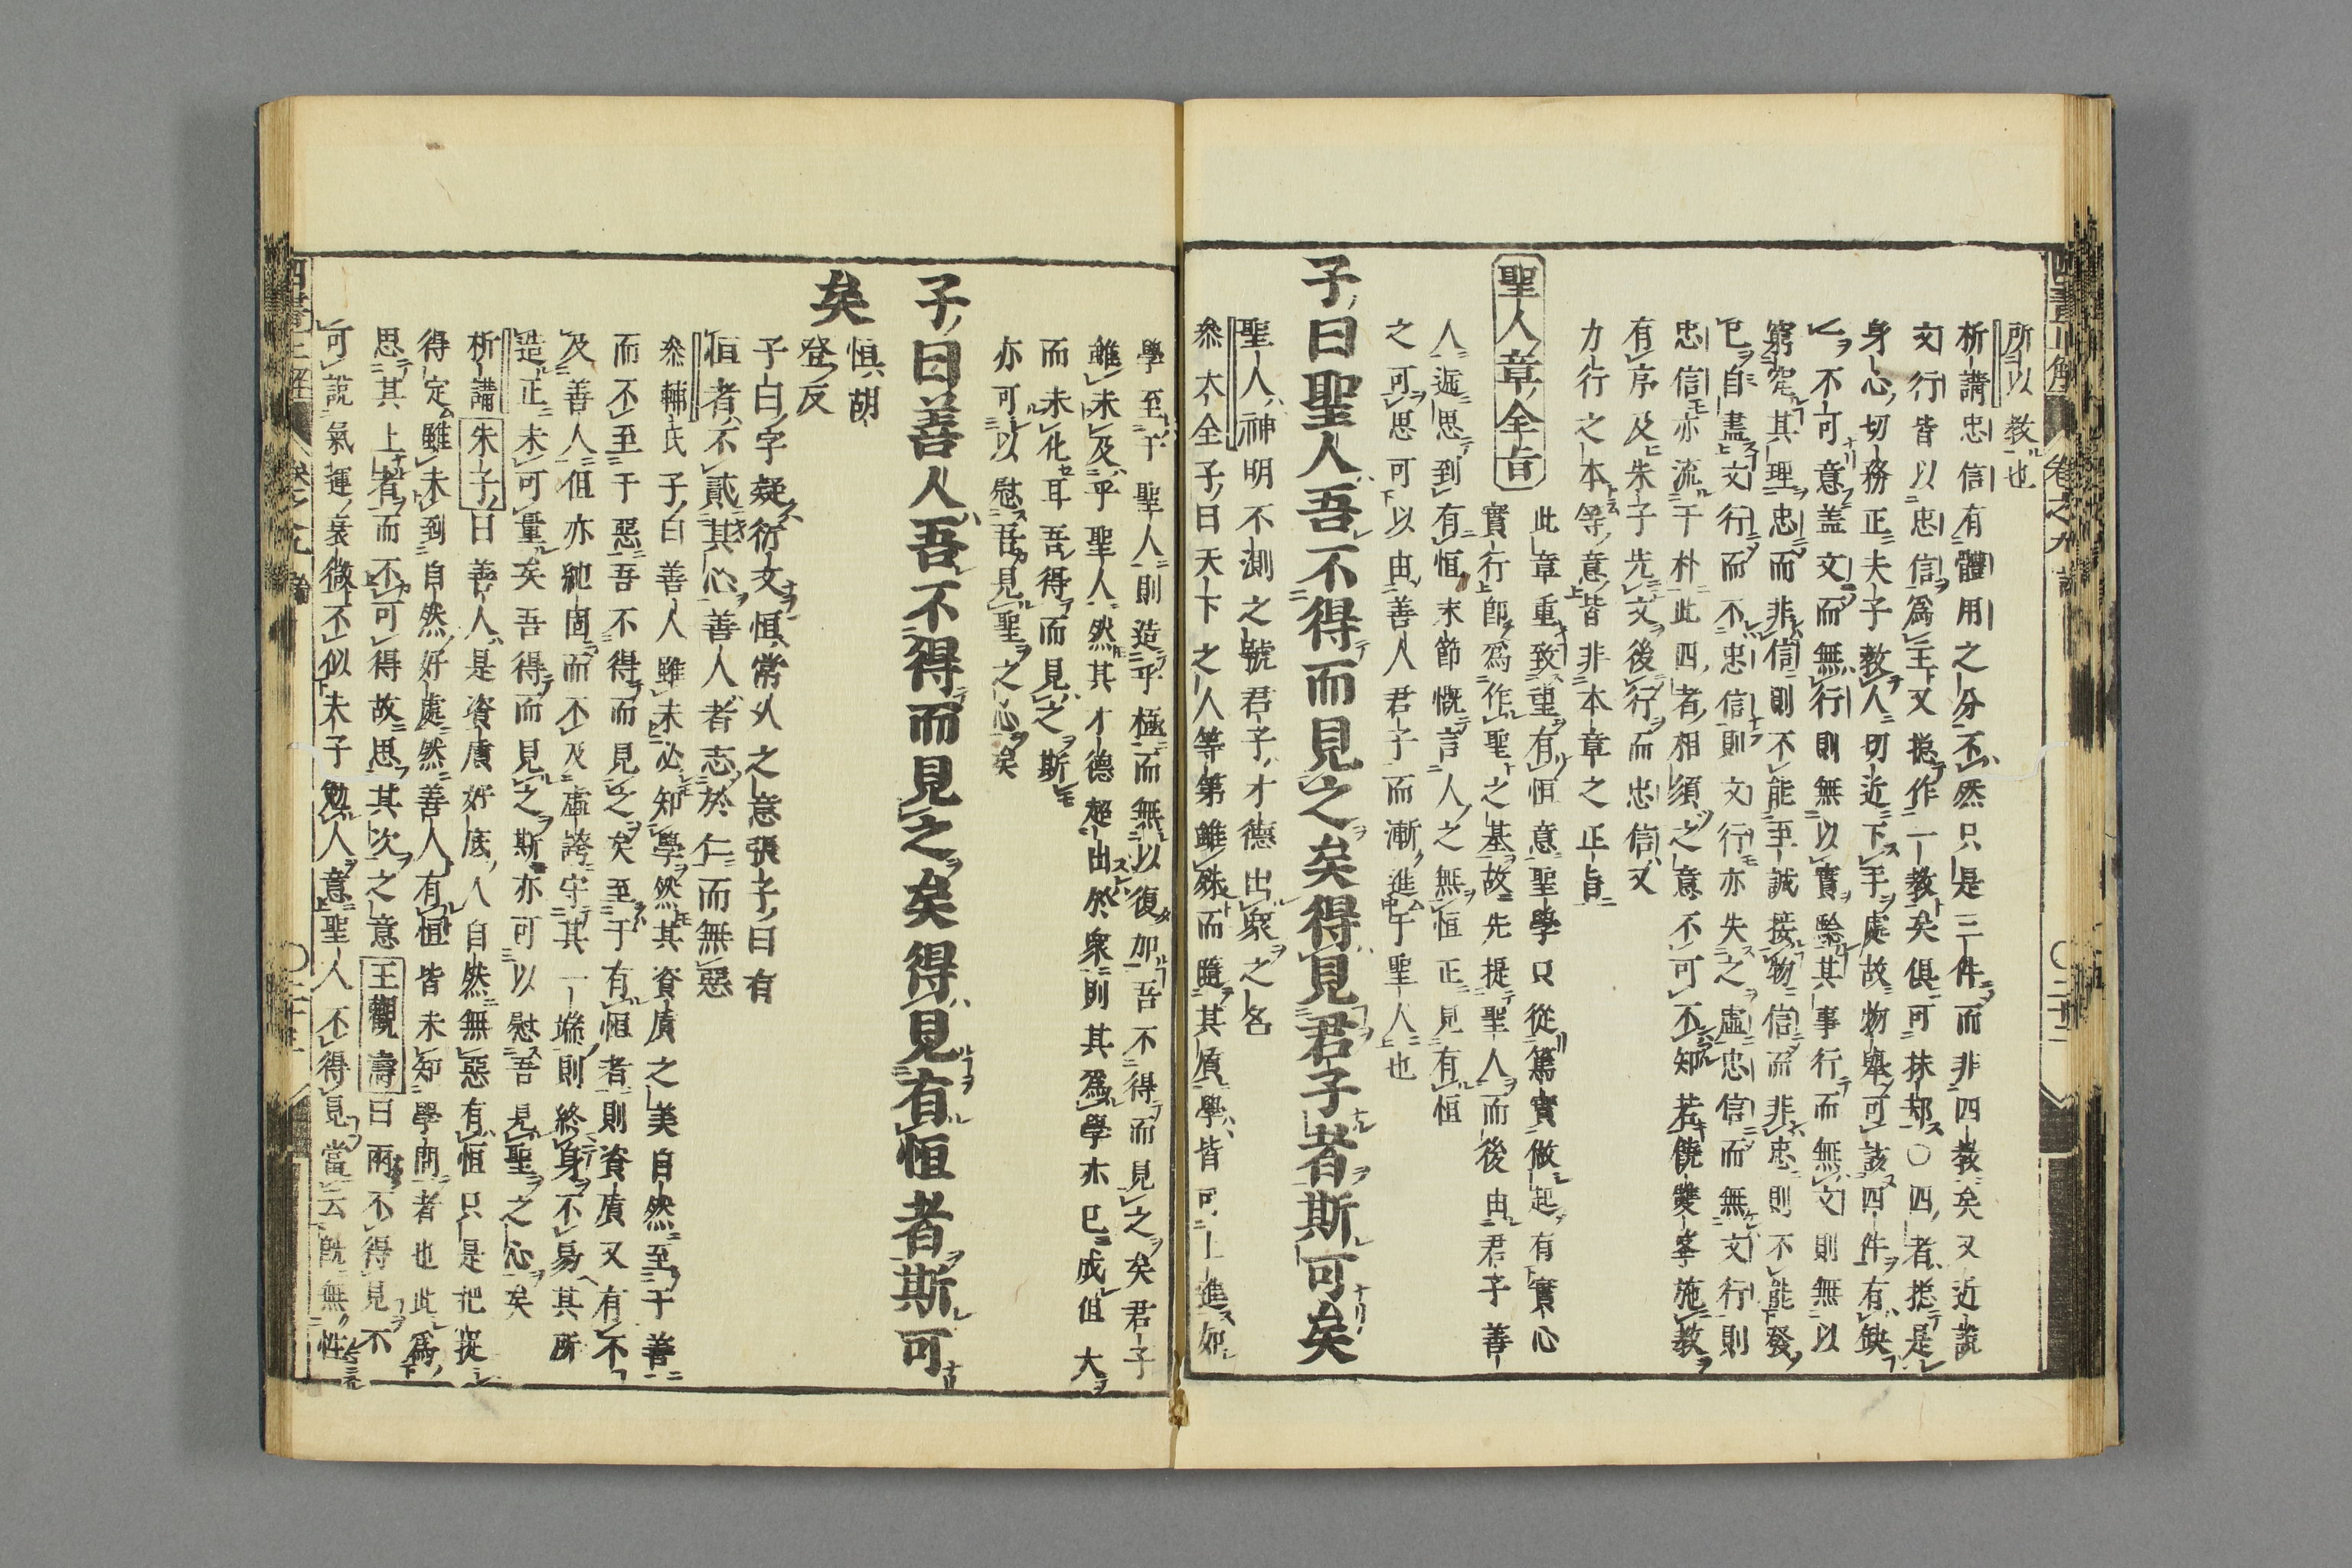 所以教也
析講忠信有體用之分不然只是三件而非四教矣又近說
文行皆以忠信爲主又揔作一教矣俱可抹却○四者揔是
身心切務正夫子教人切近下手處故物舉可該四件有缺
一不可意盖文而無行則無以實驗其事行而無文則無以
窮究其理忠而非信則不能至誠接物信而非忠則不能發
已自盡文行而不忠信則文行亦失之虛忠信而無文行則
忠信亦流于朴此四者相須之意不可不知若饒雙峯施教
有序及朱子先文後行而忠信又
力行之本等意皆非本章之正旨
聖人章全旨
此章重致望有恒意聖學只從篤實做起有實心
實行即爲作聖之基故先提聖人而後由君子善
人逓思到有恒末節慨言人之無恒正見有恒
之可思可以由善人君子而漸進于聖人也
子曰聖人吾不得而見之矣得見君子者斯可矣
聖人神明不測之號君子才德出衆之名
叅大全子曰天下之人等第雖殊而隨其質學皆可上進如
學至于聖人則造乎極而無以復加吾不得而見之矣君子
雖未及乎聖人然其才德超出於衆則其爲學亦已成但大
而未化耳吾得而見之斯
亦可以慰吾見聖之心矣
子曰善人吾不得而見之矣得見有恒者斯可
矣
恒胡
登反
子曰字疑衍文恒常久之意張子曰有
恒者不貳其心善人者志於仁而無惡
叅輔氏子曰善人雖未必知學然其資質之美自然至于善
而不至于惡吾不得而見之矣至于有恒者則資質又有不
及善人但亦純固而不及虛誇守其一端則終身不易其所
造正未可量矣吾得而見之斯亦可以慰吾見聖之心矣
析講朱子曰善人是資質好底人自然無惡有恒只是把捉
得定雖未到自然好處然善人有恒皆未知學問者也此爲
思其上者而不可得故思其次之意王觀濤曰兩不得見不
可說氣運衰微不似夫子勉人意聖人不得見當云旣無性